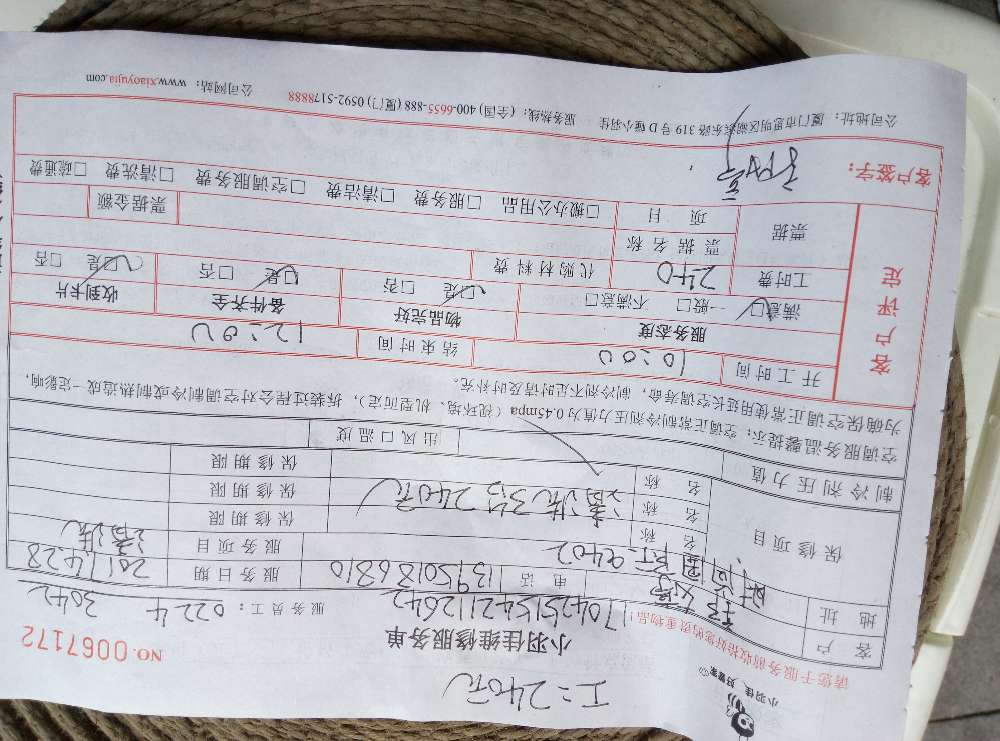 工：240元
小羽佳，好管家
请您于服务前收拾好您的贵重物品！
小羽佳维修服务单
NO.0067172
1704251542112642
服务员工：0224 3042
客户
电话 13950186810
服务日期 2017.4.28
地址
服务项目 清洗
保修项目
名称
保修期限
名称 清洗3台240元
保修期限
名称
保修期限
制冷剂压力值
出风口温度
空调服务温馨提示：空调正常制冷剂压力值为0.45mpa（视环境、机型而定），拆装过程会对空调制冷或制热造成一定影响，
为确保空调正常使用延长空调寿命，制冷剂不足时请及时补充。
客户评定
开工时间 10:00
结束时间 12:00
服务态度
满意□ 一般□ 不满意□
物品完好
□是 □否
备件齐全
□是 □否
收到卡片
□是 □否
工时费 240
代购材料费
票据
票据名称
票据金额
项目
□搬办公用品 □服务费 □清洁费 □空调服务费 □清洗费 □疏通费
客户签字：
公司地址：厦门市思明区湖滨东路319号D幢小羽佳 服务热线：(全国) 400-6655-888 (厦门) 0592-5178888 公司网站：www.xiaoyujia.com